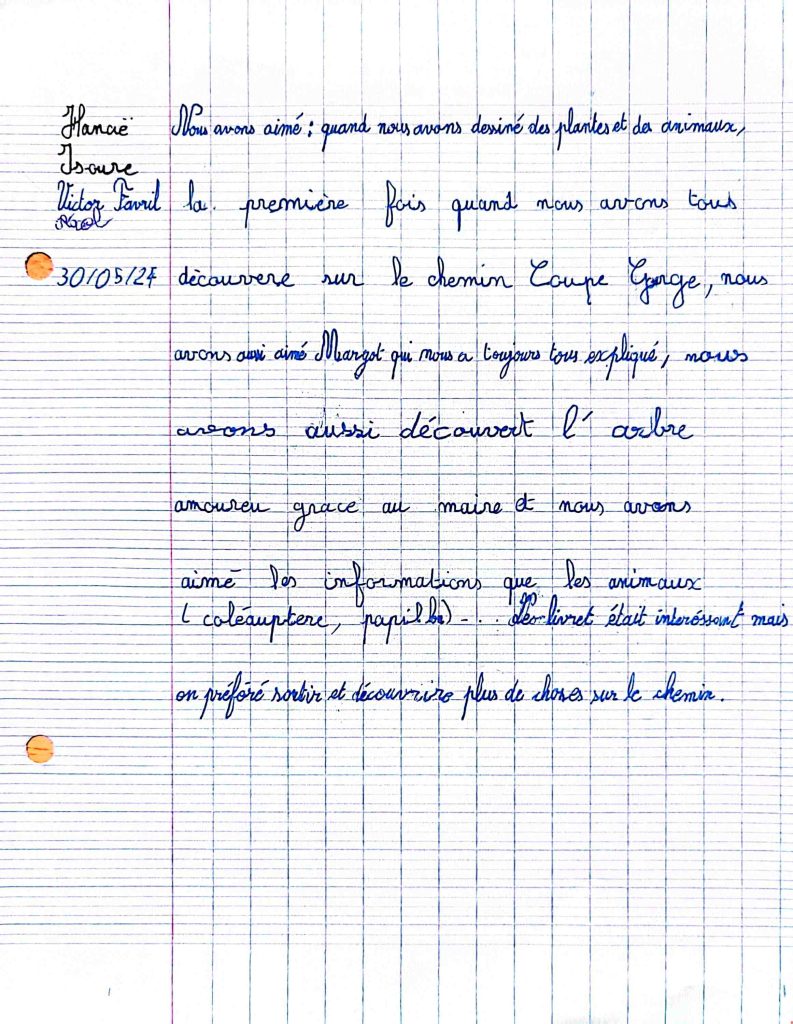 Hanaë
Isaure
Victor Favril
30/05/24
Nous avons aimé : quand nous avons dessiné des plantes et des animaux,
la première fois quand nous avons tous
découvere sur le chemin Coupe Gorge, nous
avons aussi aimé Margot qui nous a toujours tous expliqué, nous
avons aussi découvert l'arbre
amoureu grace au maire et nous avons
aimé les informations que les animaux
( coléauptere, papillon) - ... livret était interéssant mais
on préféré sortir et découvrire plus de choses sur le chemin.